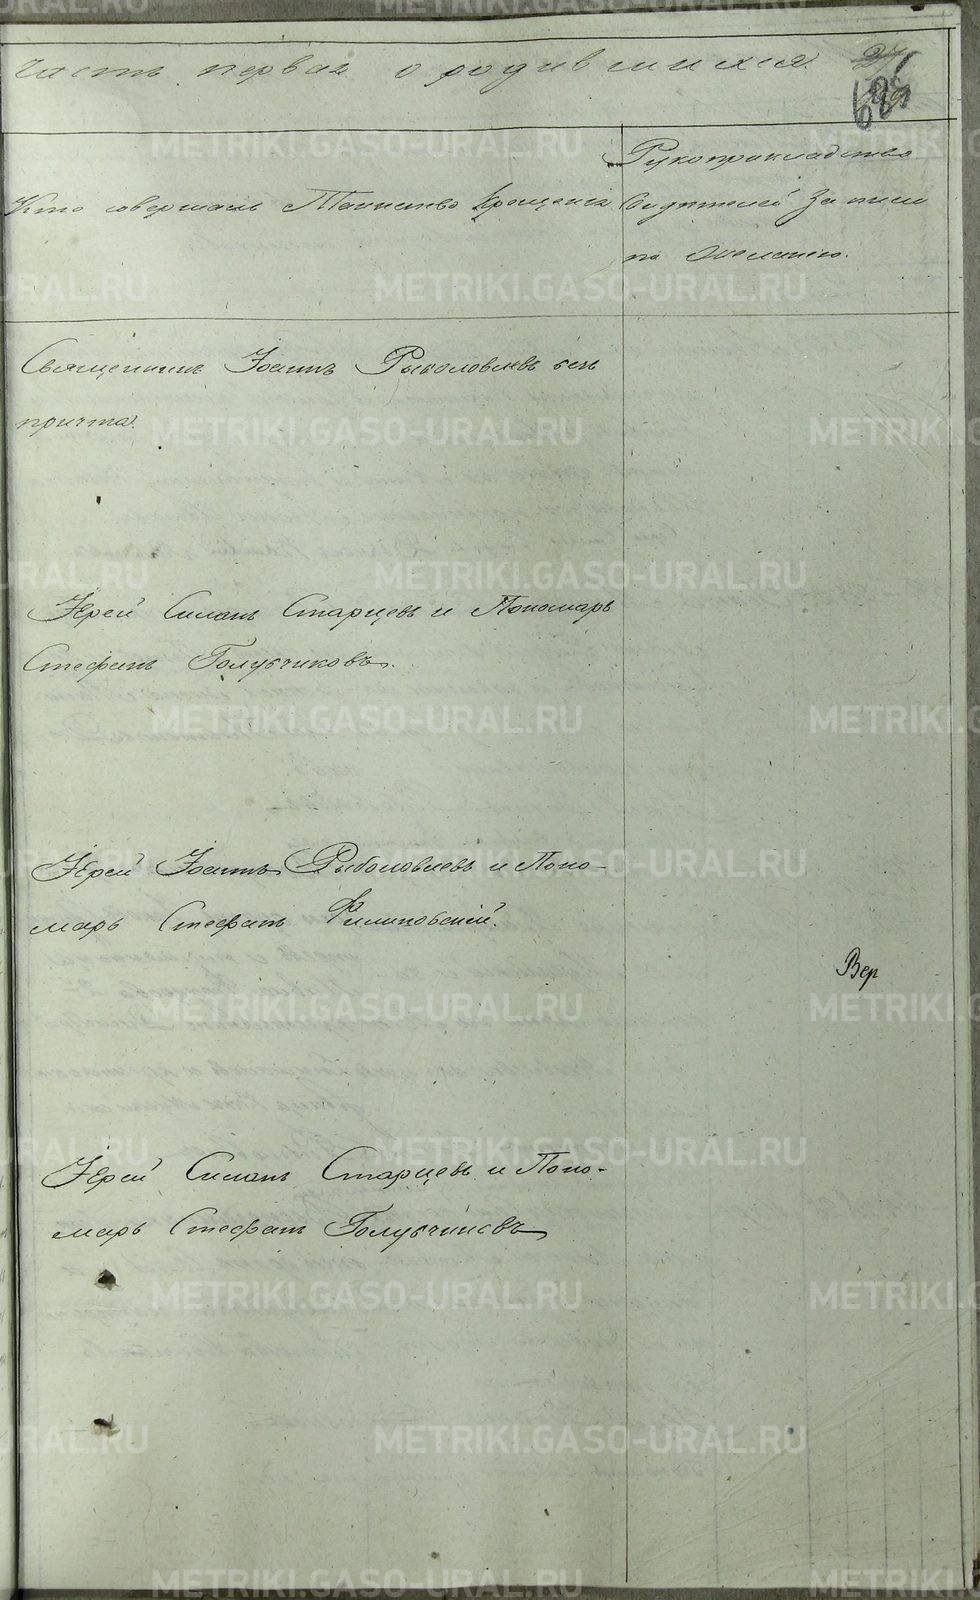 часть первая о родившихся.
Кто совершалъ Таинство Крещенія
Рукоприкладство
Свидѣтелей Записи
по Желанію.
Священникъ Іоаннъ Рыболовлевъ безъ
причта.
Іерей Силанъ Старцевъ и Пономарь
Стефанъ Голубчиковъ.
Іерей Іоаннъ Рыболовлевъ и Поно-
марь Стефанъ Филиповскій.
Вер
Іерей Силанъ Старцевъ и Поно-
марь Стефанъ Голубчиковъ
METRIKI.GASO-URAL.RU